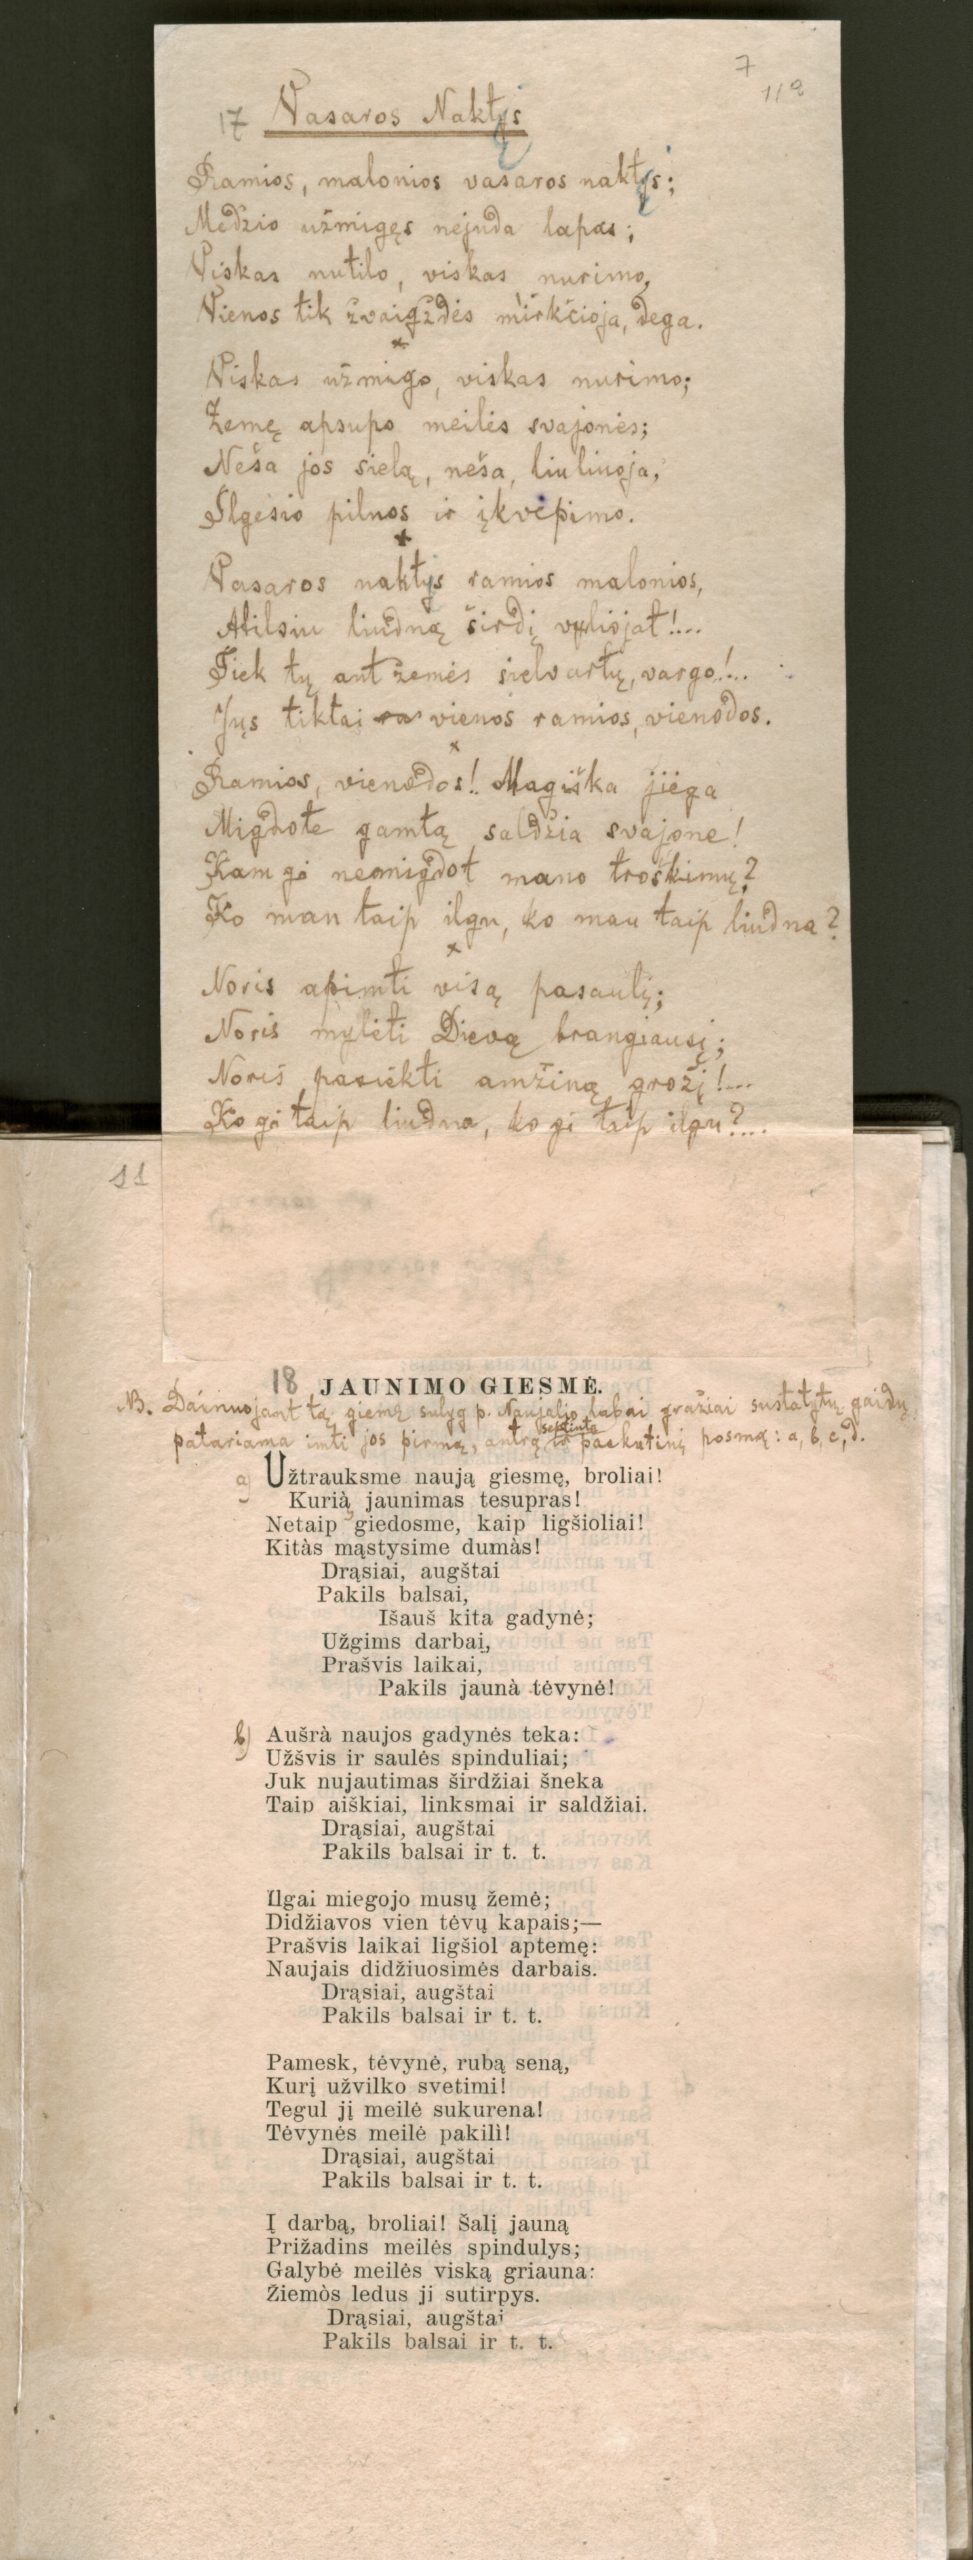 7
112
17 Vasaros Naktįs
Ramios, malonios vasaros naktįs;
Medžio užmigęs nejuda lapas;
Viskas nutilo, viskas nurimo,
Vienos tik žvaigždės mirkčioja, dega.
*
Viskas užmigo, viskas nurimo;
Žemę apsupo meilės svajonės;
Neša jos sielą, neša, liuliuoja,
Ilgėsio pilnos ir įkvėpimo.
*
Vasaros naktįs ramios malonios,
Atilsiu liudną širdį viliojat!....
Tiek tų ant žemės sielvartų, vargo!...
Jųs tiktai vienos ramios, vienodos.
*
Ramios, vienodos!.. Magiška jiėga
Migdote gamtą saldžia svajone!
Kam gi nemigdot mano troškimų?
Ko man taip ilgu, ko man taip liudna?
*
Noris apimti visą pasaulį;
Noris mylėti Dievą brangiausį;
Noris pasiekti amžiną grožį!...
Ko gi taip liudna, ko gi taip ilgu?...
11
18 JAUNIMO GIESMĖ.
NB. Dainuojant tą giesmę sulyg p. Naujalio labai gražiai sustatytų gaidų
pataríama imti jos pirmą, antrą septintą ir paskutinį posmą: a, b, c, d.
a) Užtrauksme naują giesmę, broliai!
Kurią̀ jaunimas tesupras!
Netaip giedosme, kaip ligšioliai!
Kitàs mąstysime dumàs!
Drąsiai, augštai
Pakils balsai,
Išauš kita gadynė;
Užgims darbai,
Prašvis laikai,
Pakils jaunà tėvynė!
b) Aušrà naujos gadynės teka:
Užšvis ir saulės spinduliai;
Juk nujautimas širdžiai šneka
Taip aiškiai, linksmai ir saldžiai.
Drąsiai, augštai
Pakils balsai ir t. t.
Ilgai miegojo musų žemė;
Didžiavos vien tėvų kapais;—
Prašvis laikai ligšiol aptemę:
Naujais didžiuosimės darbais.
Drąsiai, augštai
Pakils balsai ir t. t.
Pamesk, tėvynė, rubą seną,
Kurį užvilko svetimi!
Tegul jį meilė sukurena!
Tėvynės meilė pakilì!
Drąsiai, augštai
Pakils balsai ir t. t.
Į darbą, broliai! Šalį jauną
Prižadins meilės spindulys;
Galybė meilės viską griauna:
Žiemòs ledus ji sutirpys.
Drąsiai, augštai
Pakils balsai ir t. t.